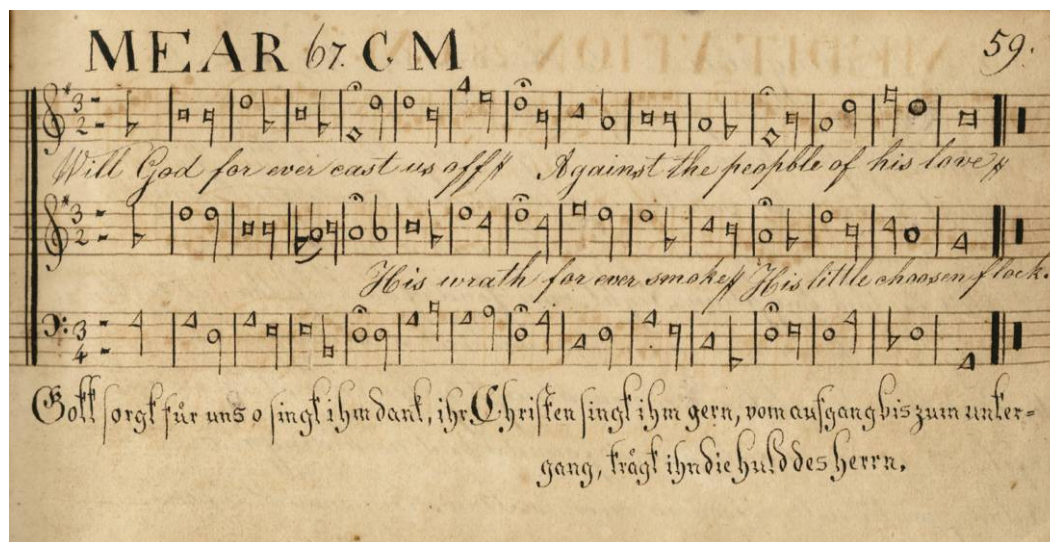 MEAR 67. C. M 59.
Will God for ever cast us off Against the peopble of his love
His wrath for ever smoke His little choosen flock.
Gott sorgt für uns o singt ihm dank, ihr Christen singt ihm gern, vom aufgang bis zum unter=
gang, trägt ihn die huld des herrn.